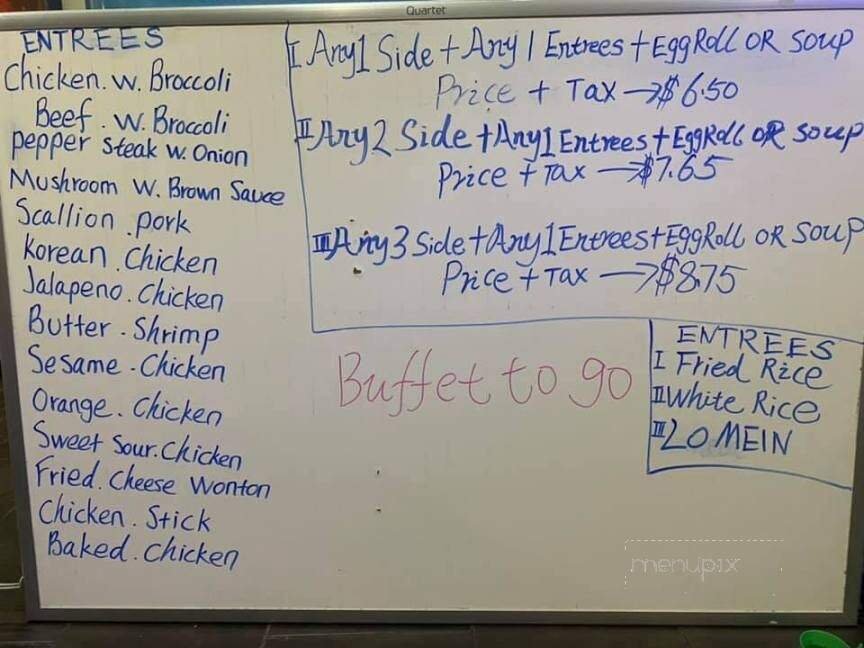 Quartet
ENTREES
Chicken. W. Broccoli
Beef. W. Broccoli
pepper steak w. Onion
Mushroom W. Brown Sauce
Scallion. pork
Korean. Chicken
Jalapeno. Chicken
Butter. Shrimp
Sesame. Chicken
Orange. Chicken
Sweet Sour. Chicken
Fried. Cheese Wonton
Chicken. Stick
Baked. Chicken
I Any 1 Side + Any 1 Entrees + Egg Roll OR SOUP
Price + Tax → $6.50
II Any 2 Side + Any 1 Entrees + Egg Roll OR SOUP
Price + Tax → $7.65
III Any 3 Side + Any 1 Entrees + Egg Roll OR SOUP
Price + Tax → $8.75
Buffet to go
ENTREES
I Fried Rice
II White Rice
III LO MEIN
menupix